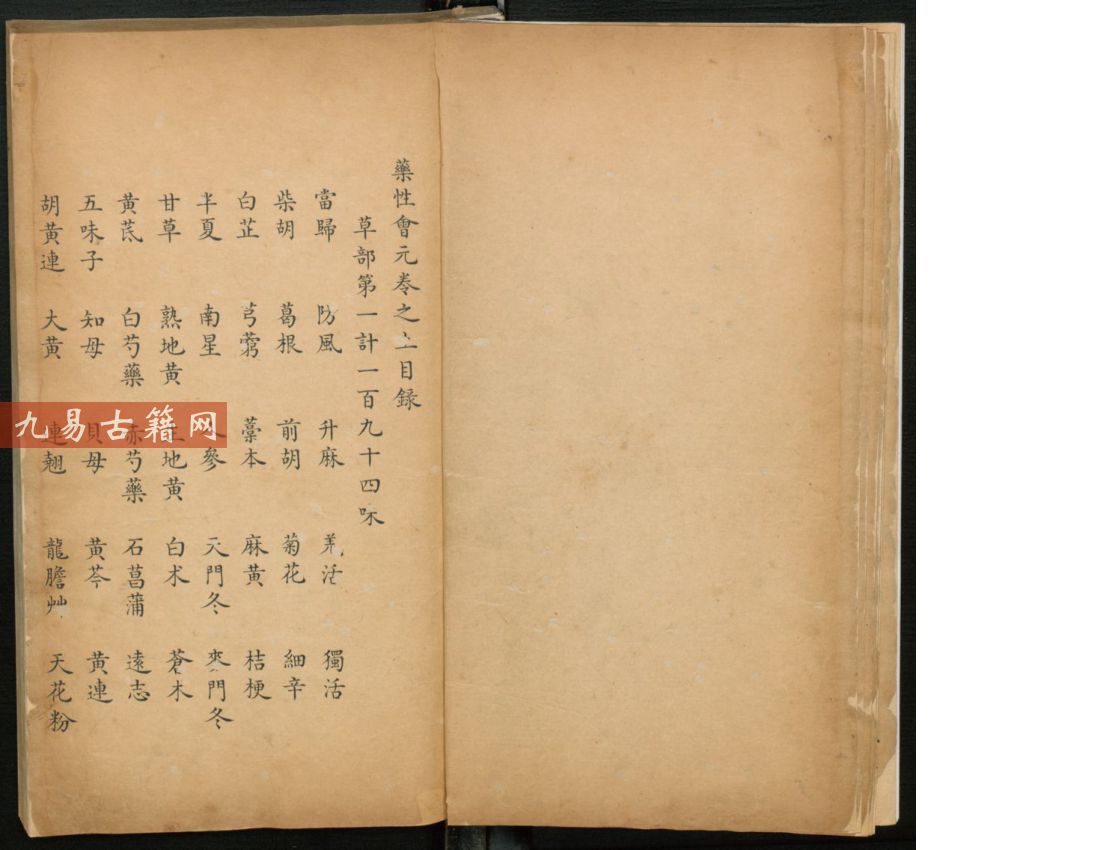 藥性會元卷之上目錄
草部第一計一百九十四味
當歸 防風 升麻 羌活 獨活
柴胡 葛根 前胡 菊花 細辛
白芷 芎藭 藁本 麻黃 桔梗
半夏 南星 參 天門冬 麥門冬
甘草 熟地黃 地黃 白术 蒼木
黃芪 白芍藥 赤芍藥 石菖蒲 遠志
五味子 知母 貝母 黃芩 黃連
胡黃連 大黃 連翹 龍膽艸 天花粉
九易古籍网